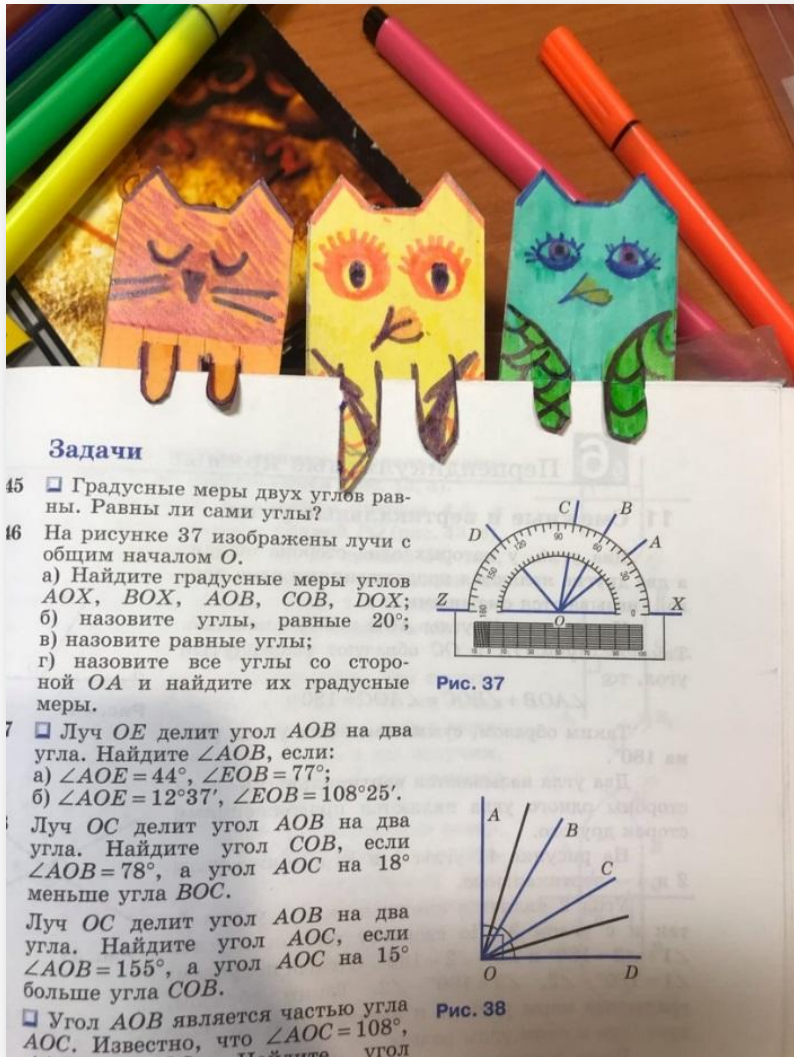 Задачи
45 Градусные меры двух углов рав-
ны. Равны ли сами углы?
46 На рисунке 37 изображены лучи с
общим началом O.
а) Найдите градусные меры углов
AOX, BOX, AOB, COB, DOX;
б) назовите углы, равные 20°;
в) назовите равные углы;
г) назовите все углы со сторо-
ной OA и найдите их градусные
меры.
7 Луч OE делит угол AOB на два
угла. Найдите ∠AOB, если:
а) ∠AOE = 44°, ∠EOB = 77°;
б) ∠AOE = 12°37′, ∠EOB = 108°25′.
Луч OC делит угол AOB на два
угла. Найдите угол COB, если
∠AOB = 78°, а угол AOC на 18°
меньше угла BOC.
Луч OC делит угол AOB на два
угла. Найдите угол AOC, если
∠AOB = 155°, а угол AOC на 15°
больше угла COB.
Угол AOB является частью угла
AOC. Известно, что ∠AOC = 108°,
угол
Z D C B A X
O
Рис. 37
A B C
O D
Рис. 38